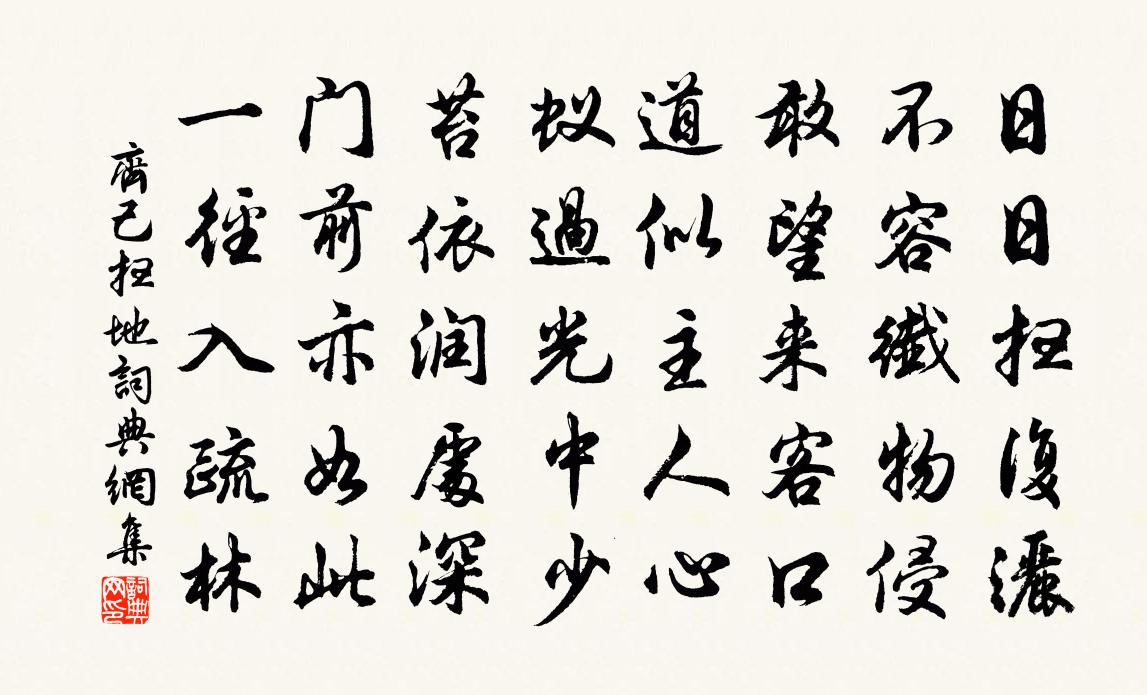 日日扫復灑
不容纖物侵
敢望来客口
道似主人心
蚁過光中少
苔依润處深
门前亦如此
一徑入疏林
齊己扫地詞典網集
詞典网印